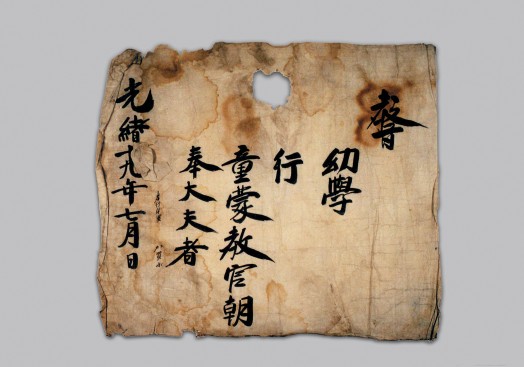 幼學
行
童蒙教官朝
奉大夫者
光緖十九年七月日